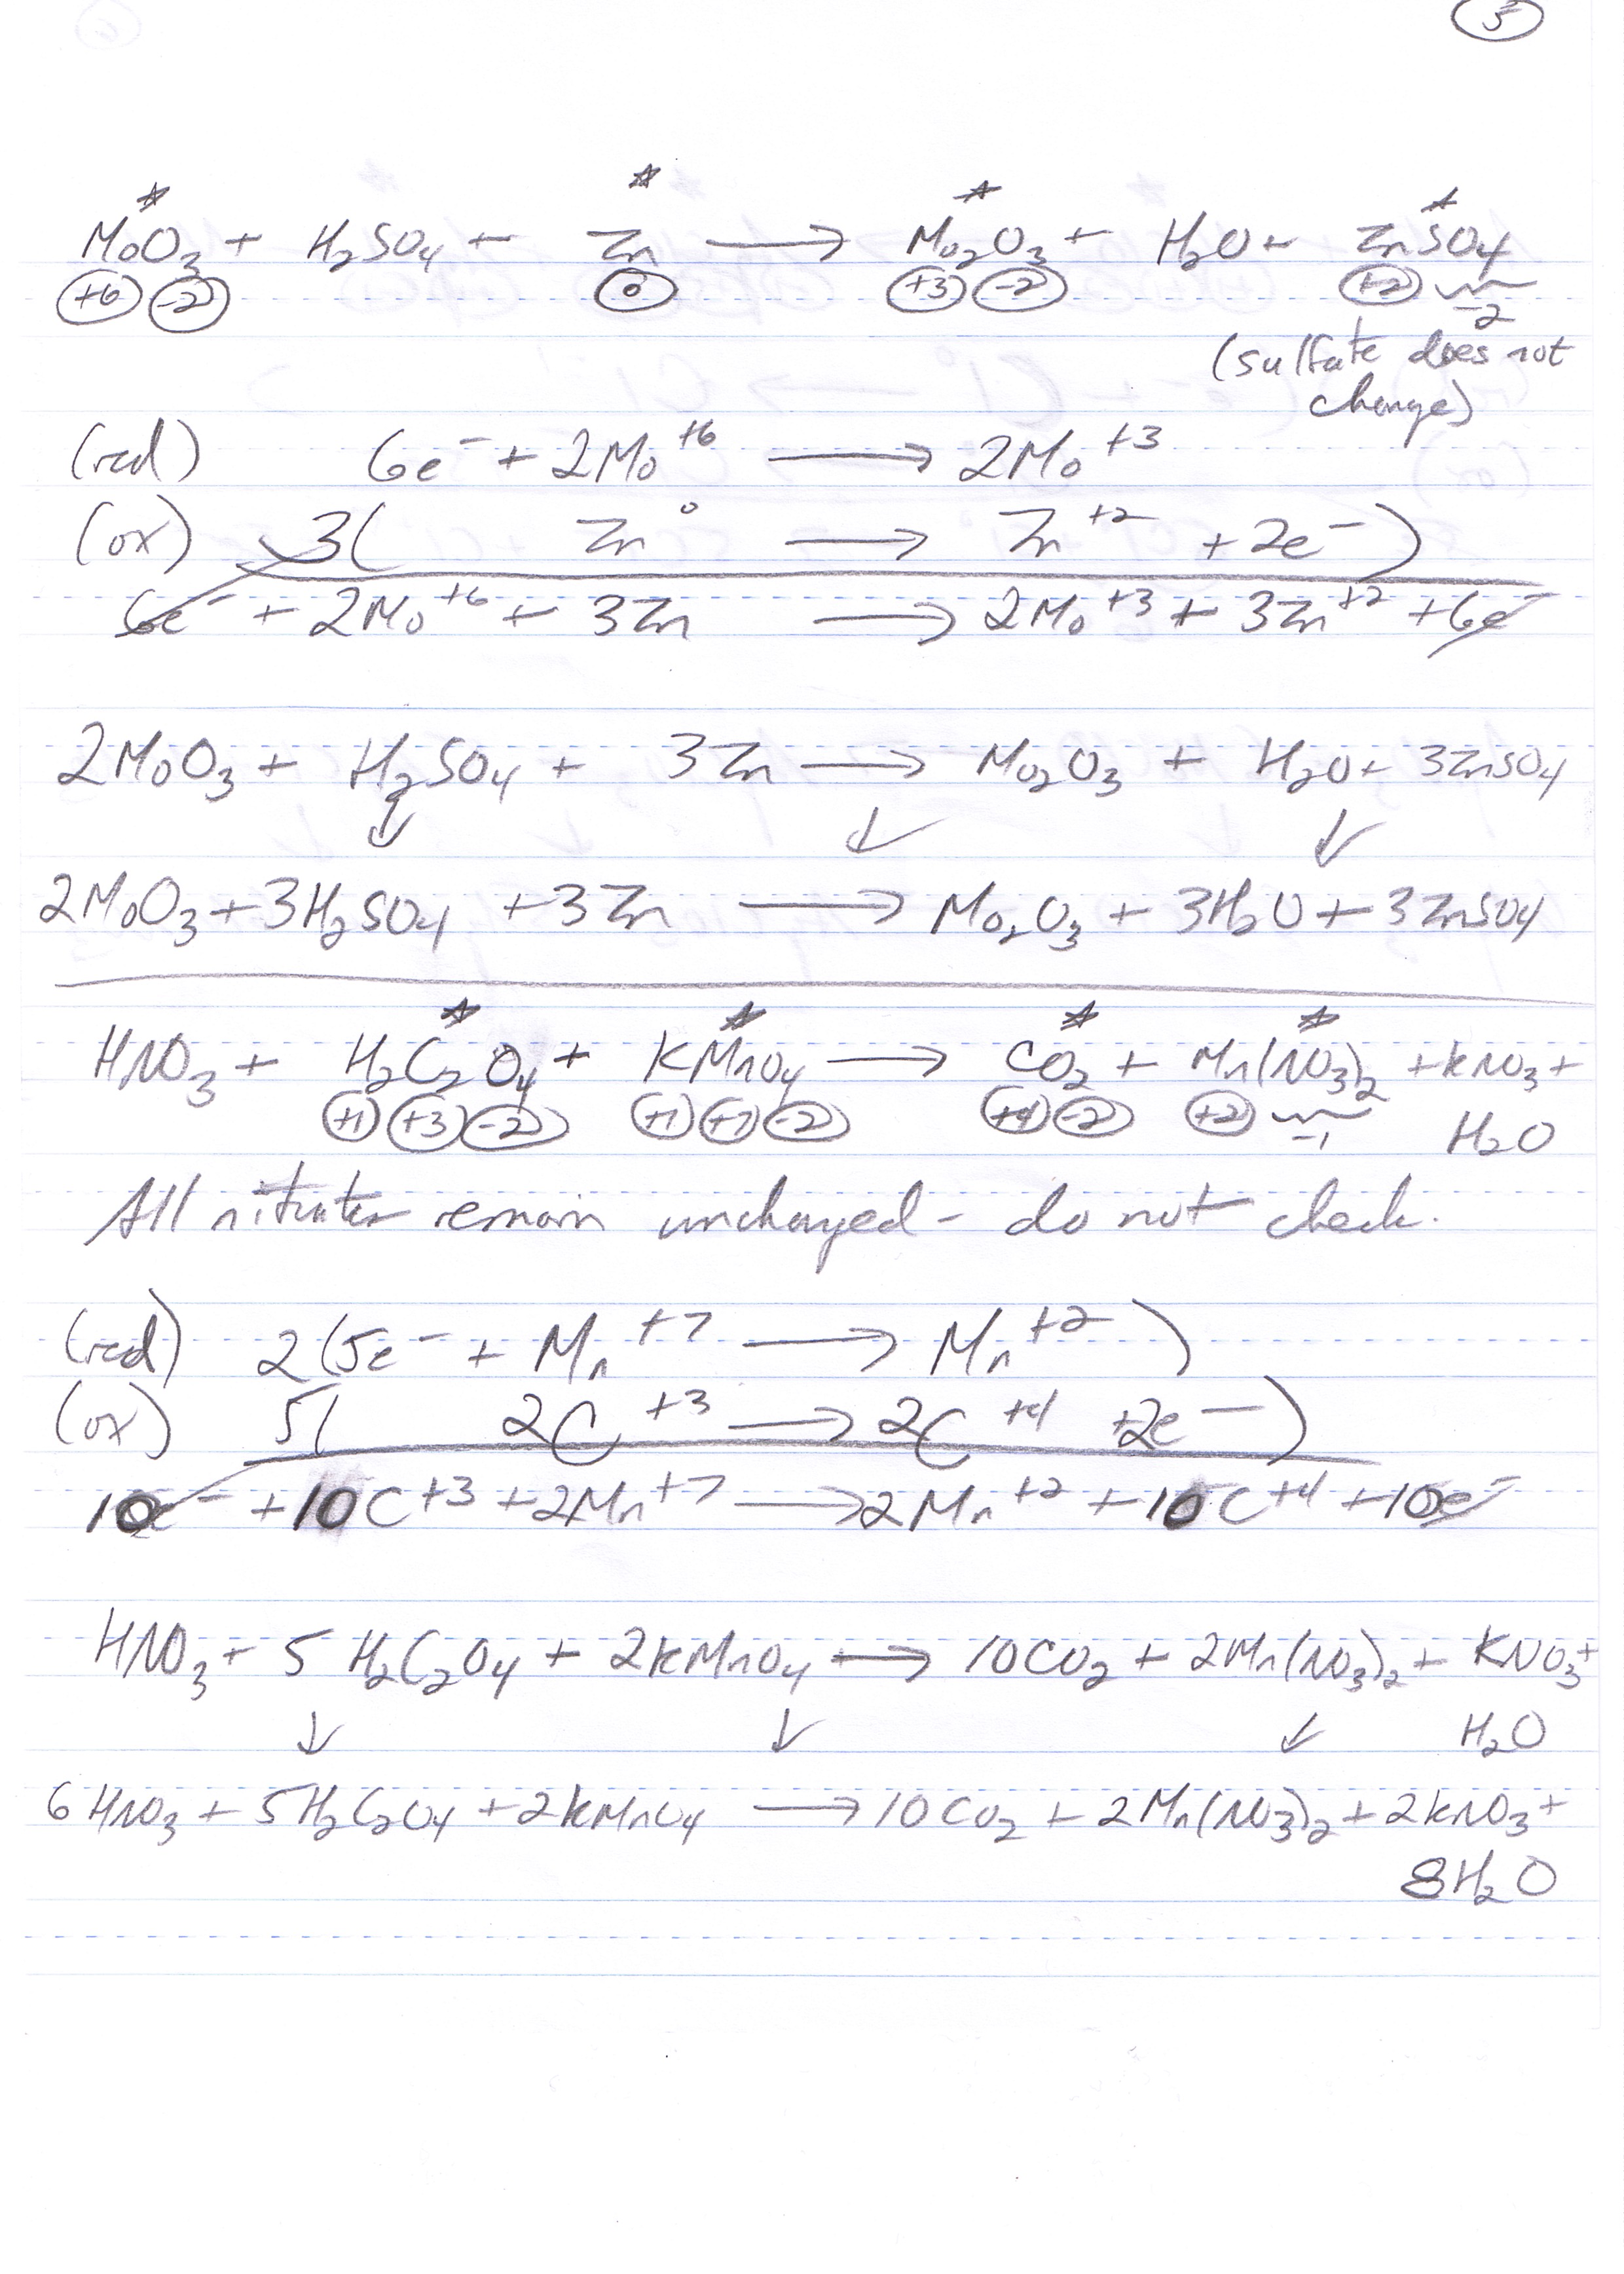 5
☆ ☆ ☆ ☆
MoO₃ + H₂SO₄ + Zn ⟶ Mo₂O₃ + H₂O + ZnSO₄
+6 -2 0 +3 -2 +2 -2
(sulfate does not
change)
(red) 6e⁻ + 2Mo⁺⁶ ⟶ 2Mo⁺³
(ox) 3( Zn⁰ ⟶ Zn⁺² + 2e⁻)
6e⁻ + 2Mo⁺⁶ + 3Zn ⟶ 2Mo⁺³ + 3Zn⁺² + 6e⁻
2MoO₃ + H₂SO₄ + 3Zn ⟶ Mo₂O₃ + H₂O + 3ZnSO₄
↓ ↓ ↓
2MoO₃ + 3H₂SO₄ + 3Zn ⟶ Mo₂O₃ + 3H₂O + 3ZnSO₄
☆ ☆ ☆ ☆
HNO₃ + H₂C₂O₄ + KMnO₄ ⟶ CO₂ + Mn(NO₃)₂ + KNO₃ +
+1 +3 -2 +1 +7 -2 +4 -2 +2 -1 H₂O
All nitrates remain unchanged - do not check.
(red) 2(5e⁻ + Mn⁺⁷ ⟶ Mn⁺²)
(ox) 5( 2C⁺³ ⟶ 2C⁺⁴ +2e⁻)
10e⁻ + 10C⁺³ + 2Mn⁺⁷ ⟶ 2Mn⁺² + 10C⁺⁴ + 10e⁻
HNO₃ + 5H₂C₂O₄ + 2KMnO₄ ⟶ 10CO₂ + 2Mn(NO₃)₂ + KNO₃ +
↓ ↓ ↓ H₂O
6HNO₃ + 5H₂C₂O₄ + 2KMnO₄ ⟶ 10CO₂ + 2Mn(NO₃)₂ + 2KNO₃ +
8H₂O